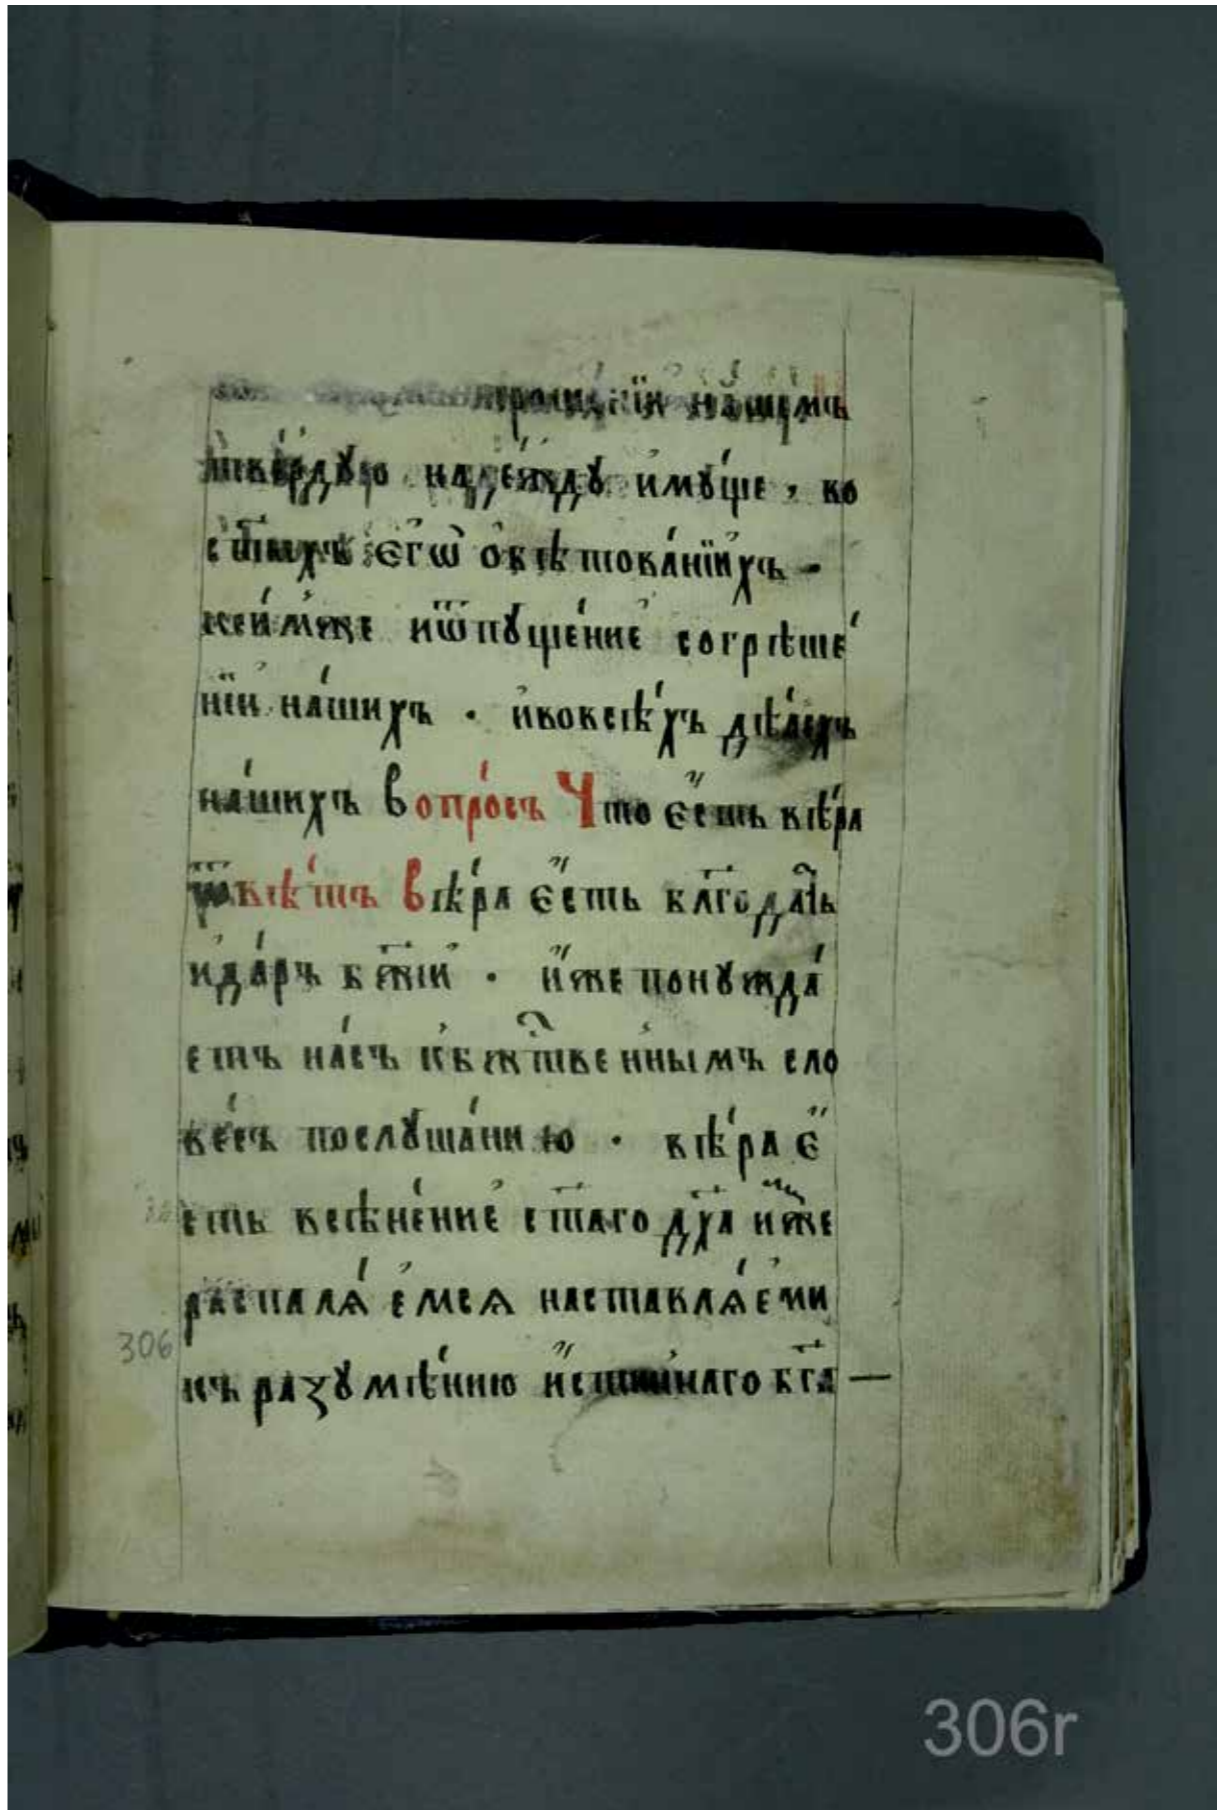 нашемъ
твердую наде́жду и҆му́ще , во
ст҃ыхъ є҆гѡ̀ ѻ҆бѣтова́нїихъ -
все́мже иѿпуще́ние согрѣше́
нїи на́шихъ . и҆вовсѣ́хъ дѣ́лехъ
на́шихъ Вопро́съ Что є҆́сть вѣ́ра
ѿвѣ́тъ Вѣ́ра є҆́сть бл҃года́ть
идаръ бж҃їи . и҆́же понужда́
етъ на́съ кбж҃твеннымъ сло
ве́съ послуша́нию . вѣ́ра є҆́
сть всѣне́ние ст҃аго дх҃а и҆́мже
распаля́емся наставля́еми
къ разумѣ́нию и҆́стиннаго бг҃а —
306
306r